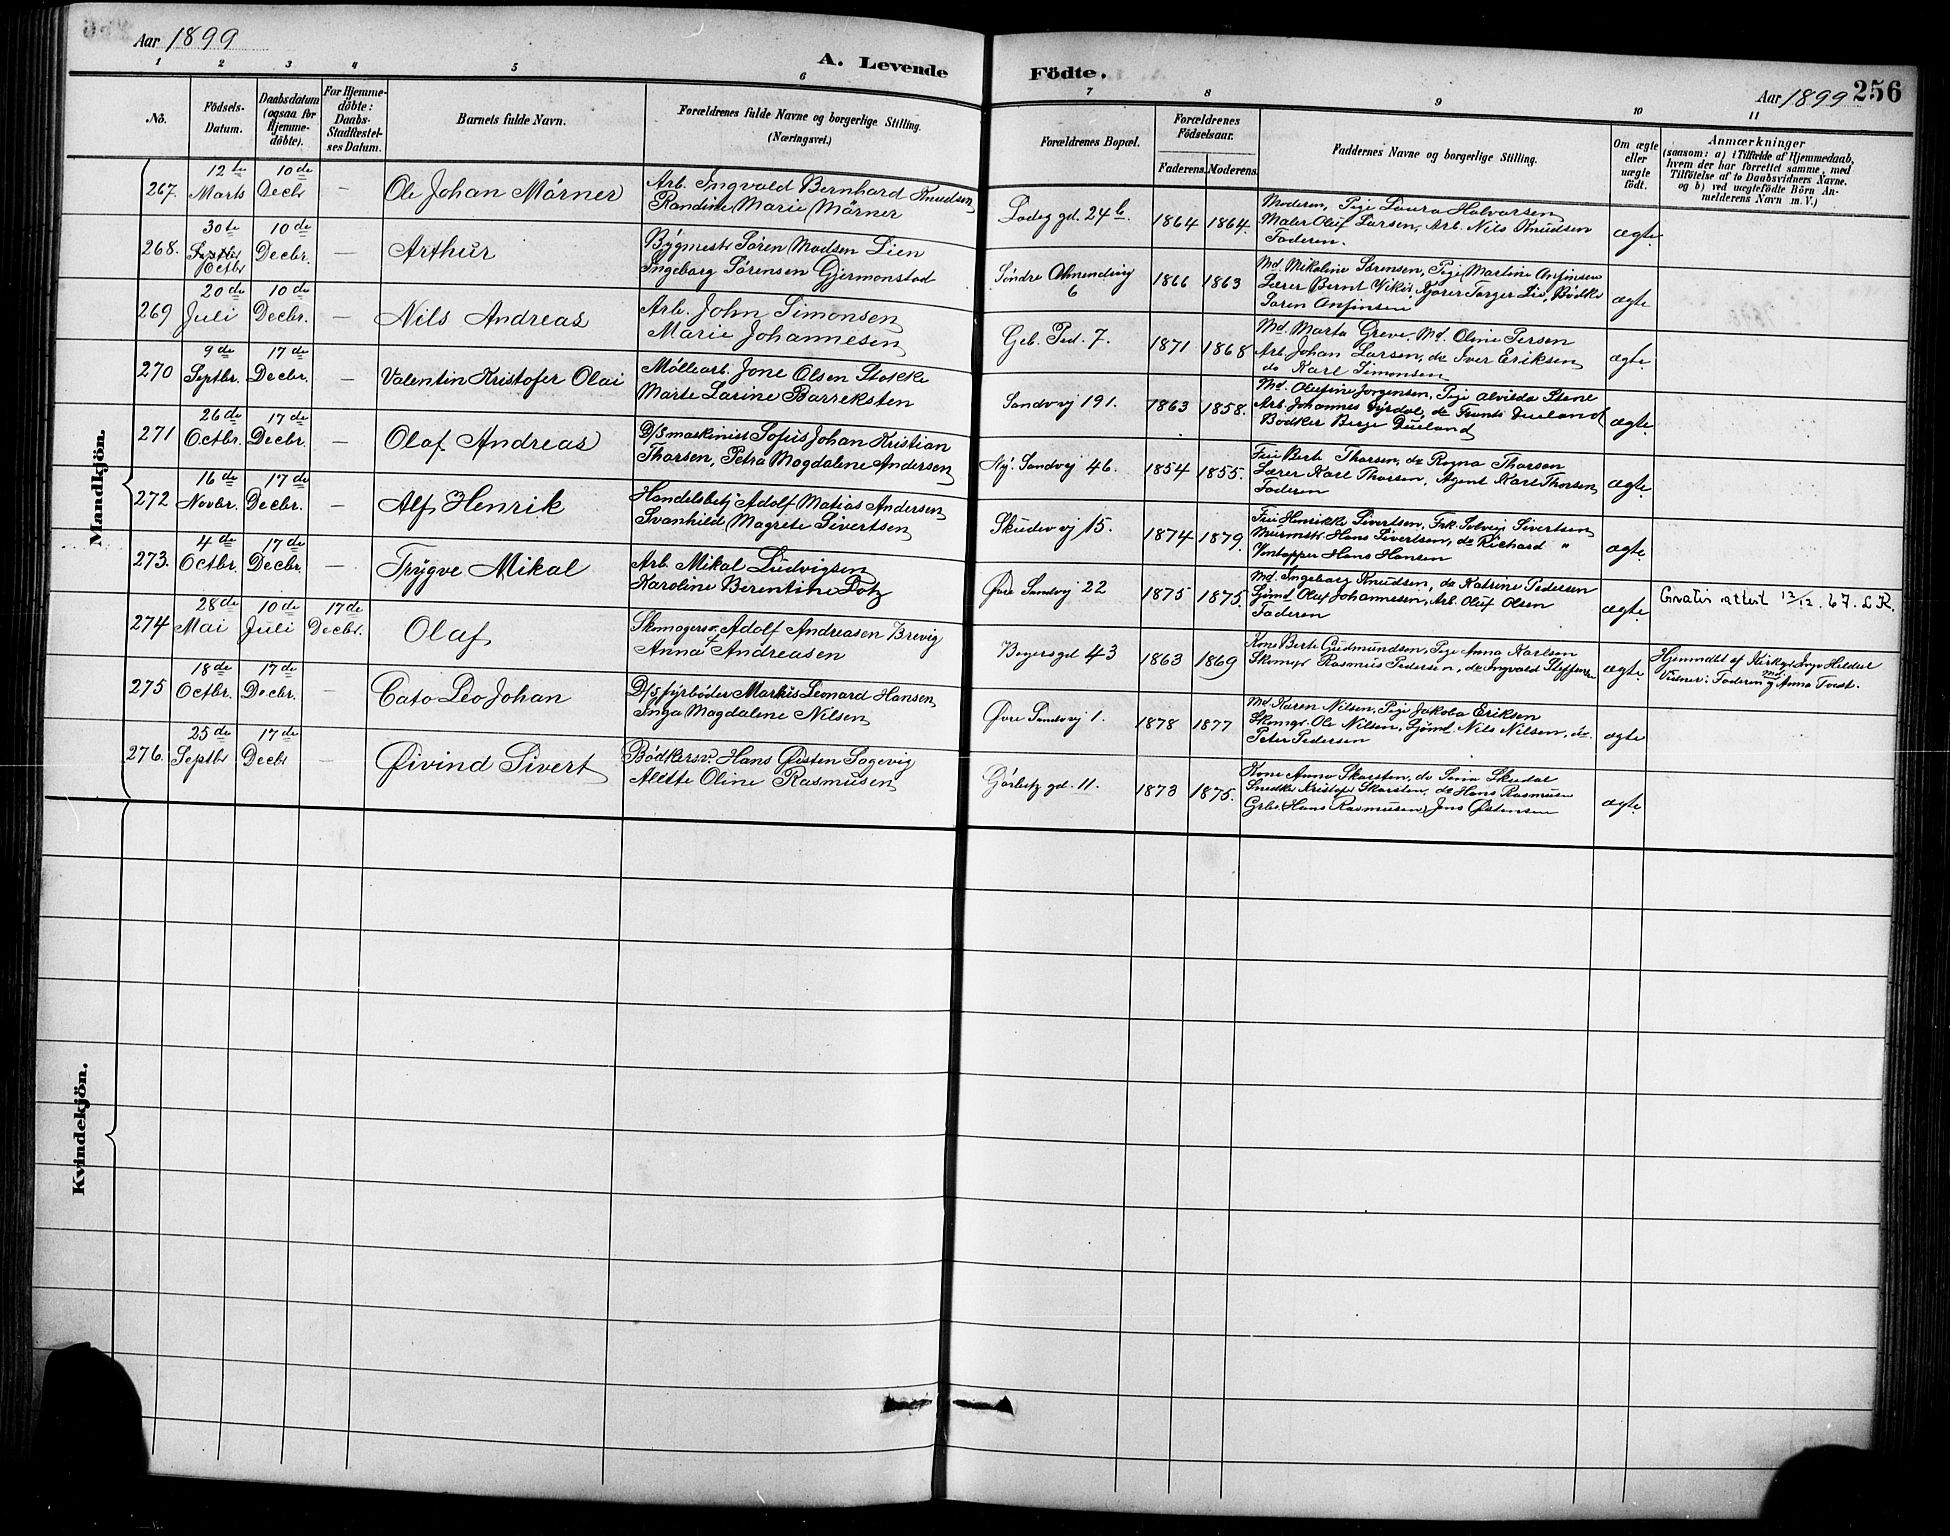 Aar 1899
A. Levende Födte.
Aar 1899 256
1 2 3 4 5 6 7 8 9 10 11
No. Födsels-Datum. Daabsdatum (ogsaa for Hjemme-döbte). For Hjemme-döbte: Daabs-Stadfæstel-ses Datum. Barnets fulde Navn. Forældrenes fulde Navne og borgerlige Stilling. (Næringsvei.) Forældrenes Bopæl. Forældrenes Födselsaar. Faderens. Moderens. Faddernes Navne og borgerlige Stilling. Om ægte eller uægte födt. Anmærkninger (saasom: a) i Tilfælde af Hjemmedaab, hvem der har forrettet samme, med Tilföielse af to Daabsvidners Navne. og b) ved uægtefödte Börn An-melderens Navn m. V.)
Mandkjön.
267. 12te Marts 10de Decbr — Ole Johan Mörner Arb. Ingvald Bernhard Knudsen
Randine Marie Mörner
Ladeg gd. 24 b. 1864 1864. Moderen, Pige Laura Halvorsen
Maler Oluf Larsen, Arb. Nils Knudsen
Faderen. ægte
268. 30te Septbr Octbr 10de Decbr. — Arthur Bygmestr Sören Madsen Lien
Ingeborg Sörensen Gjermonstad
Söndre Almendvej 6 1866 1863 Md. Mikaline Sörensen, Pige Martine Anfinsen
Lærer Bernt Vikör, Gjörer Torger Lie, Bödker
Soren Anfinsen ægte
269 20de Juli 10de Decbr. — Nils Andreas Arb. John Simonsen
Marie Johannesen
Geb. Ped. 7. 1871 1868 Md. Marta Greve. Md. Oline Persen
Arb. Johan Larsen, do Iver Eriksen
do Karl Simonsen ægte
270 9de Septbr. 17de Decbr. — Valentin Kristofer Olai Möllearb. Jone Olsen Stokke
Marte Larine Barreksten
Sandvej 191. 1863 1858. Md. Olufine Jorgensen, Pige Alvilda Stene
Arb. Johannes Dyrdal, do Frants Dueland
Bödker Berge Dueland ægte.
271 26de Octbr. 17de Decbr. — Olaf Andreas D/S maskinist Sofus Johan Kristian
Thorsen, Petra Magdalene Andersen
Ny. Sandvej 46. 1854 1855. Frue Berte Thorsen, do Ragna Thorsen
Lærer Karl Thorsen, Agent Karl Thorsen,
Faderen ægte.
272 16de Novbr. 17de Decbr. — Alf Henrik Handelsbetj Adolf Matias Andersen
Svanhild Magrete Sivertsen
Skudevej 15. 1874 1879. Frue Henrikke Sivertsen, Frk. Solveig Sivertsen
Murmstr Hans Sivertsen, do Richard "
Vintapper Hans Hansen ægte
273. 4de Octbr. 17de Decbr. — Trygve Mikal Arb. Mikal Ludvigsen
Karoline Berentine Lotz
Övre Sandvej 22 1875 1875. Md. Ingeborg Knudsen, do Katrine Pedersen
Sjömd Oluf Johannesen, Arb. Oluf Olsen
Faderen ægte. Gratis attest 12/12. 67. L.R.
274 28de Mai 10de Juli 17de Decbr. Olaf Skomagersv Adolf Andreasen Brevig
Anna Andreasen
Beyersgd 43 1863 1869 Kone Berte Gudmundsen, Pige Anna Karlsen
Skomgr Rasmus Pedersen, do Ingvald Steffensen ægte Hjemmdbt af Kirkegr. Inge Hilder
Vidner: Faderen og Md. Anna Tvedt.
275 18de Octbr. 17de Decbr. — Cato Leo Johan D/S fyrböder Markus Leonard Hansen
Inga Magdalene Nilsen
Övre Sandvej 1. 1878 1877 Md Karen Nilsen, Pige Jakoba Eriksen
Skomgr. Ole Nilsen, Sjömd. Nils Nilsen, do.
Peter Pedersen ægte
276. 25de Septbr 17de Decbr — Öivind Sivert Bödkersv. Hans Östen Sagevig
Alette Oline Rasmusen
Gjörbetz gd. 11. 1873 1875. Kone Anna Skarsten, do Sina Skudal
Snedker Kristofer Skarsten, do Hans Rasmusen
Grbs. Hans Rasmusen, Jens Östensen ægte.
Kvindekjön.